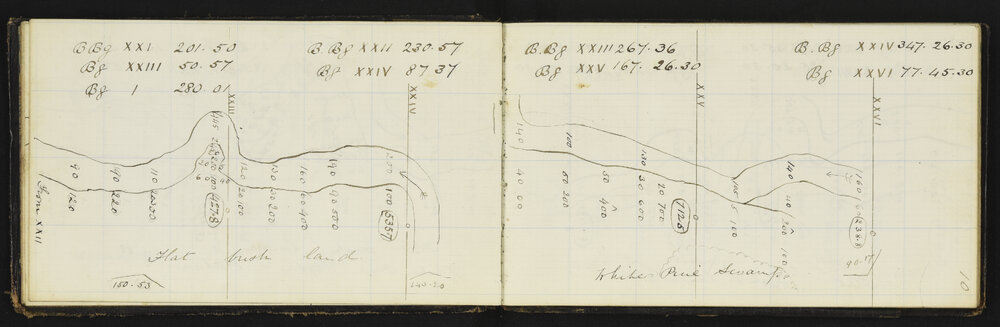 B Bg XXI 201.50
Bg XXIII 50.57
Bg I 280 01
B. Bg XXII 230.57
Bg XXIV 87 37
XXIII
XXIV
From XXII
90
120
90
220
110
2300
4278
120
20
100
130
30
200
160
60
400
190
90
500
100
5357
Flat bush land
150.53
B. Bg XXIII 267.36
Bg XXV 167. 26.30
B. Bg XXIV 347.26.30
Bg XXVI 77.45.30
XXV
XXVI
140
40
00
100
50
200
50
400
130
30
600
20
700
7126
5
100
140
40
200
100
160
White Pine Swamp
10